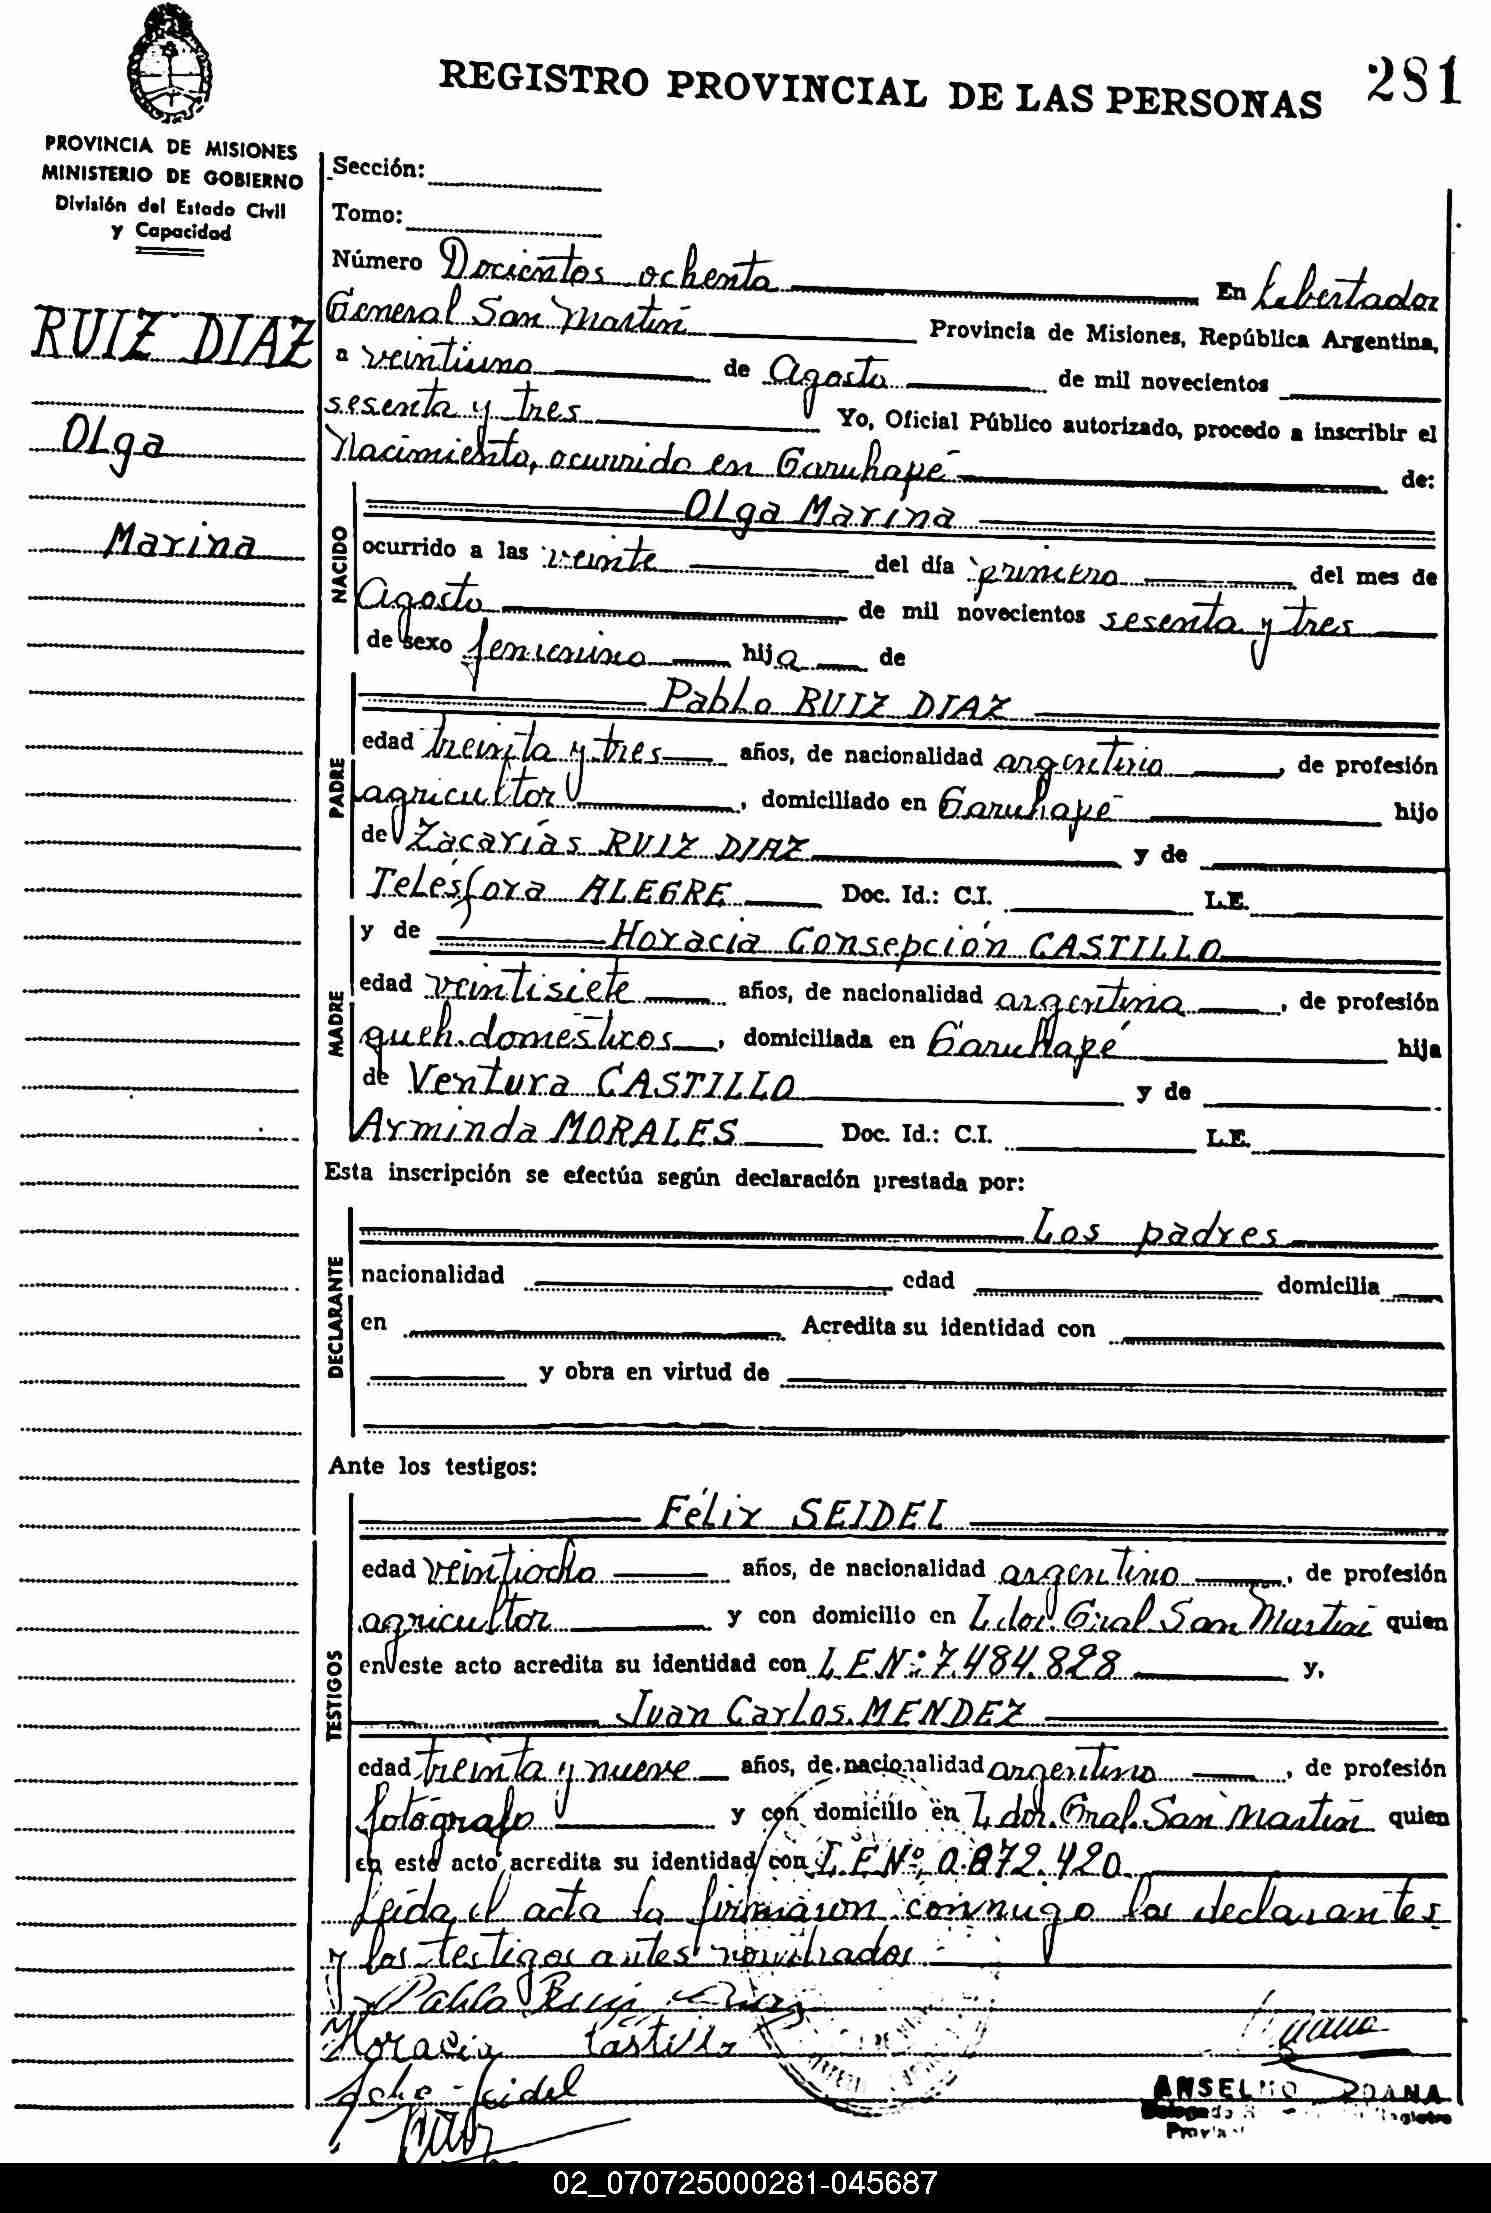 281
REGISTRO PROVINCIAL DE LAS PERSONAS
PROVINCIA DE MISIONES
MINISTERIO DE GOBIERNO
División del Estado Civil
y Capacidad
RUIZ DIAZ
Olga
Marina
Sección:
Tomo:
Número Docientos ochenta En Libertador
General San Martín Provincia de Misiones, República Argentina,
a veintiuno de Agosto de mil novecientos
sesenta y tres Yo, Oficial Público autorizado, procedo a inscribir el
Nacimiento, ocurrido en Garuhapé de:
NACIDO
Olga Marina
ocurrido a las veinte del día primero del mes de
Agosto de mil novecientos sesenta y tres
de sexo femenino hija de
PADRE
Pablo RUIZ DIAZ
edad treinta y tres años, de nacionalidad argentino, de profesión
agricultor, domiciliado en Garuhapé hijo
de Zacarías RUIZ DIAZ y de
Telésfora ALEGRE Doc. Id.: C.I. L.E.
MADRE
y de Horacia Consepción CASTILLO
edad veintisiete años, de nacionalidad argentina, de profesión
queh. domésticos, domiciliada en Garuhapé hija
de Ventura CASTILLO y de
Arminda MORALES Doc. Id.: C.I. L.E.
Esta inscripción se efectúa según declaración prestada por:
DECLARANTE
Los padres
nacionalidad edad domicilia
en Acredita su identidad con
y obra en virtud de
Ante los testigos:
TESTIGOS
Félix SEIDEL
edad veintiocho años, de nacionalidad argentino, de profesión
agricultor y con domicilio en Ldor. Gral San Martín quien
en este acto acredita su identidad con L.E.Nº: 7.484.828 y,
Juan Carlos MENDEZ
edad treinta y nueve años, de nacionalidad argentino, de profesión
fotógrafo y con domicilio en Ldor. Gral. San Martín quien
en este acto acredita su identidad con L.E.Nº. 0.872.420
Leida el acta la firmaron conmigo los declarantes
y los testigos antes nombrados.
Pablo Ruiz Diaz
Horacia Castillo
Seidel
ANSELMO
02_070725000281-045687